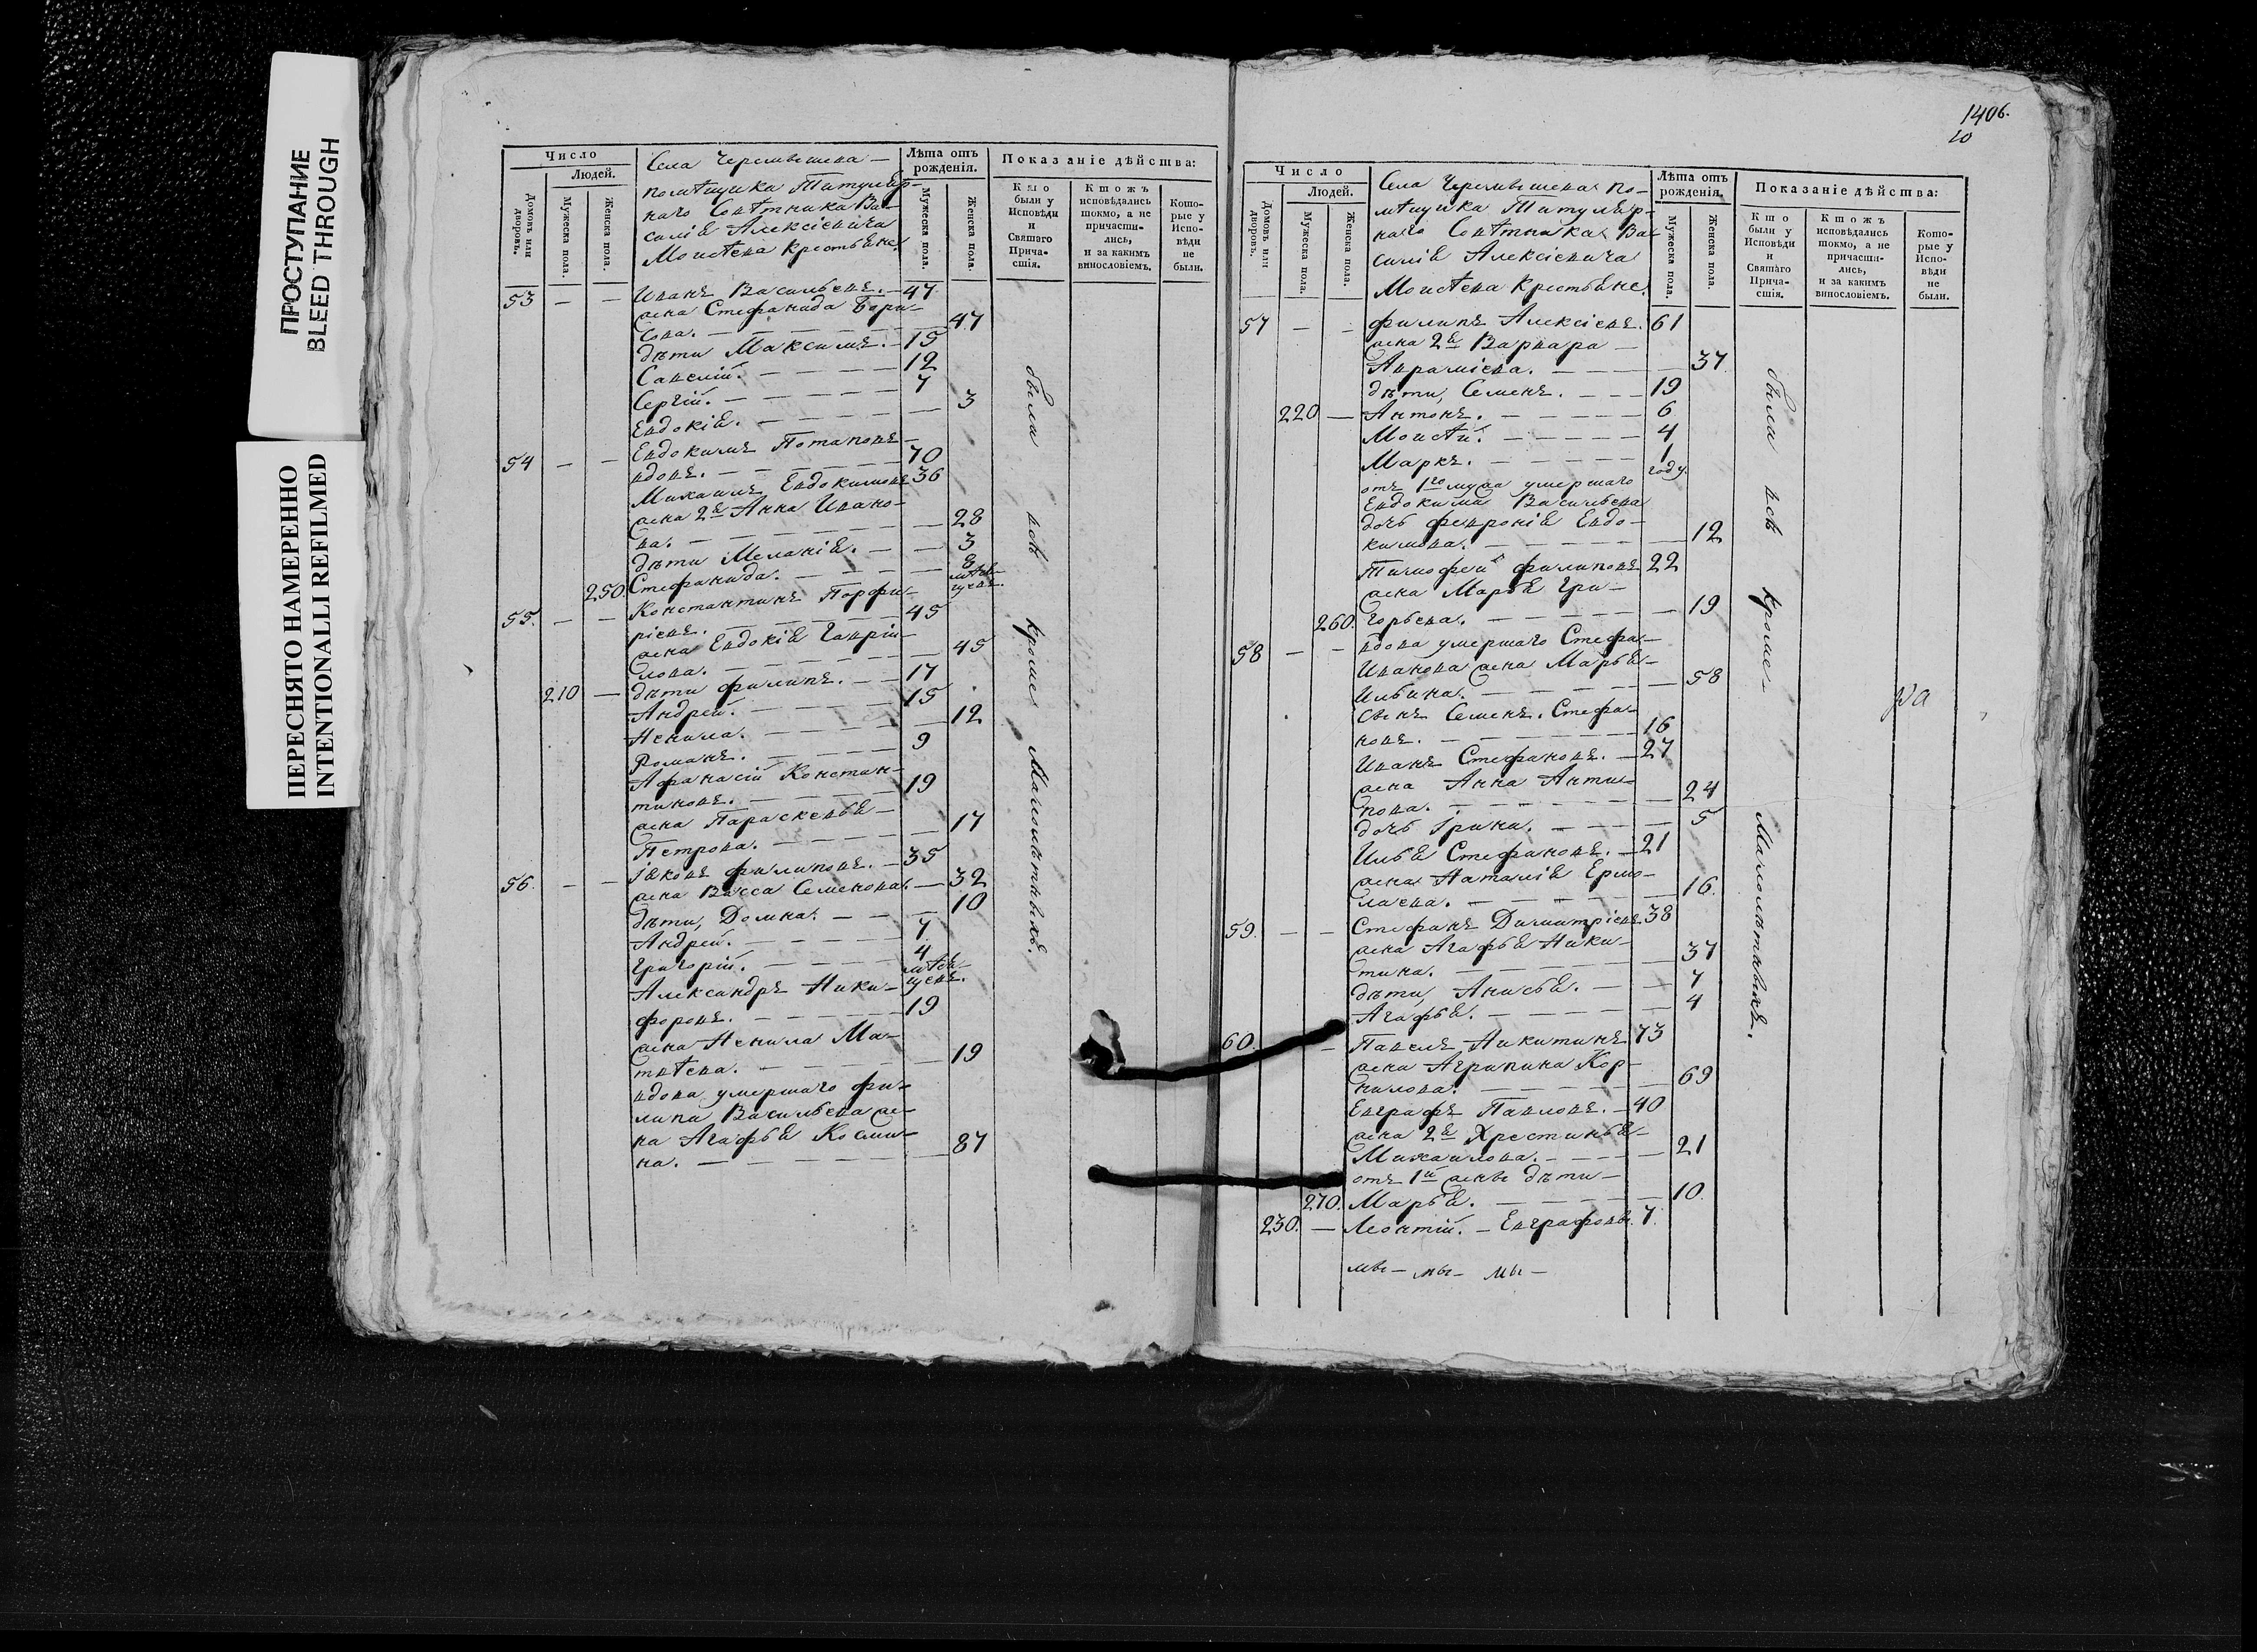 ПРОСТУПАНИЕ
BLEED THROUGH
ПЕРЕСНЯТО НАМЕРЕННО
INTENTIONALLI REFILMED
Число
Людей.
Домовъ или дворовъ.
Мужеска пола.
Женска пола.
Села
помѣщика Титуляр-
наго Совѣтника Ва-
силія Алексіевича
Моисѣева крестьяне
Лѣта отъ рожденія.
Мужеска пола.
Женска пола.
Показаніе дѣйства:
Кто были у Исповѣди и Святаго Прича-стія.
Ктожъ исповѣдались токмо, а не причасти-лись, и за какимъ винословіемъ.
Кото-рые у Испо-вѣди не были.
53 — — Иванъ Васильевъ. — 47
жена Стефанида Бори-
сова. — 47
дѣти Максимъ. — 15
Савелій. — 12
Сергій. — 7
Евдокія. — 3
54 — — Евдокимъ Потаповъ
вдовъ. — 70
Михаилъ Евдокимовъ 36
жена 2я Анна Ивано-
ва. — 28
дѣти Меланія. — 3
250. Стефанида. — 8 мѣся-
цевъ.
55. — — Константинъ Порфи-
ріевъ. — 45
жена Евдокія Гаврии-
лова. — 45
210 — дѣти Филипъ. — 17
Андрей. — 15
Ненила. — 12
Романъ. — 9
Афанасій Констан-
тиновъ. — 19
жена Параскевья
Петрова. — 17
56. — — Іаковъ Филиповъ. — 35
жена Васса Семенова. — 32
дѣти, Домна. — 10
Андрей. — 7
Григорій. — 4 мѣся-
цевъ.
Александръ Ники-
форовъ. — 19
жена Ненила Ма-
твѣева. — 19
вдова умершаго Фи-
липа Васильева же-
на Агафья Косми-
на. — 87
были всѣ кромѣ Малолѣтныхъ.
1406.
10
Число
Людей.
Домовъ или дворовъ.
Мужеска пола.
Женска пола.
Села по-
мѣщика Титуляр-
наго Совѣтника Ва-
силія Алексіевича
Моисѣева крестьяне
Лѣта отъ рожденія.
Мужеска пола.
Женска пола.
Показаніе дѣйства:
Кто были у Исповѣди и Святаго Прича-стія.
Ктожъ исповѣдались токмо, а не причасти-лись, и за какимъ винословіемъ.
Кото-рые у Испо-вѣди не были.
57 — — Филипъ Алексіевъ. 61
жена 2я Варвара
Авраміева. — 37
дѣти, Семенъ. — 19
220 — Антонъ. — 6
Моисѣй. — 4
Маркъ. — 1
году.
отъ 1го мужа умершаго
Евдокима Васильева
дочь Февронія Евдо-
кимова. — 12
Тимофей Филиповъ 22
жена Марья Гри-
260. горьева. — 19
58 — — вдова умершаго Стефа-
Иванова жена Марья
Ильина. — 58
сынъ Семенъ Стефа-
новъ. — 16
Иванъ Стефановъ. — 27
жена Анна Анти-
пова. — 24
дочь Ірина. — 5
Илья Стефановъ. — 21
жена Наталія Ермо-
лаева. — 16.
59. — — Стефанъ Димитріевъ 38
жена Агафья Ники-
тина. — 37
дѣти, Анисья. — 7
Агафья. — 4
60. — Павелъ Никитинъ 73
жена Агрипина Кор-
нилова. — 69
Евграфъ Павловъ. — 40
жена 2я Христинья
Михаилова. — 21
отъ 1й жены дѣти
270. Марья. — 10.
230. — Леонтій. — Евграфовы. 7.
мы — мы — мы —
были всѣ кроме Малолѣтныхъ.